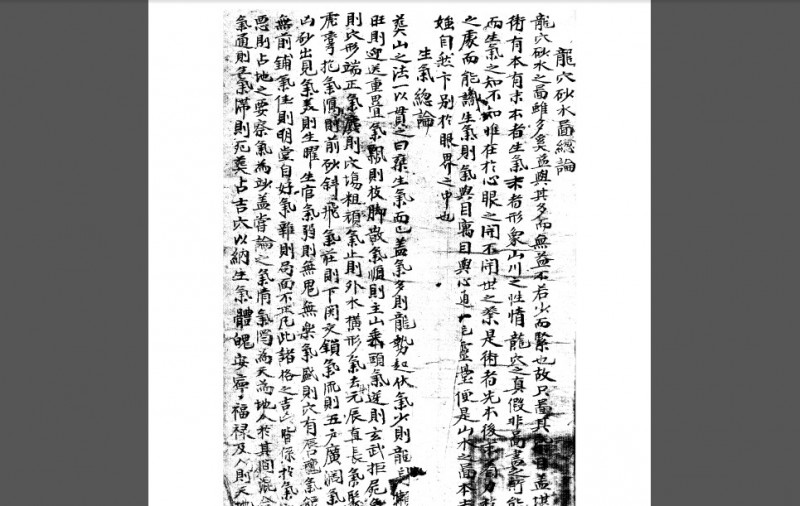 龍穴砂水啚總論
龍穴砂水之啚雖多奚益與其多而無益不若少而緊也故只啚其
術有本有末本者生氣末者形象山川之性情龍穴之真假非啚畫之所能
而生氣之知不知惟在於心眼之開不開世之業是術者先本後末
之處而能識生氣則氣與目寓目與心通一七靈臺便是山水之啚本
媸自然卞别於眼界之中也
生氣總論
葬山之法一以貫之曰乘生氣而已盖氣多則龍勢起伏氣少則龍
旺則迎送重疊氣飄則枝脚散氣順則主山垂頭氣逆則玄武拒屍
則穴形端正氣衰則穴塲粗頑氣止則外水橫形氣去元辰直長氣聚
虎拏抱氣順則前砂斜飛氣莊則下関交鎖氣流則五户廣濶氣
凶砂出見氣美則生曜生官氣弱則無鬼無樂氣盛則穴有唇氊氣
無前鋪氣佳則明堂自好氣雜則局面不正凡此諸格之吉凶皆係於氣
惡則占地之要察氣為妙盖嘗論之氣清氣濁為天為地人於其間混
氣通則生氣滯則死葬占吉穴以納生氣體魄安寧福禄及人則天地